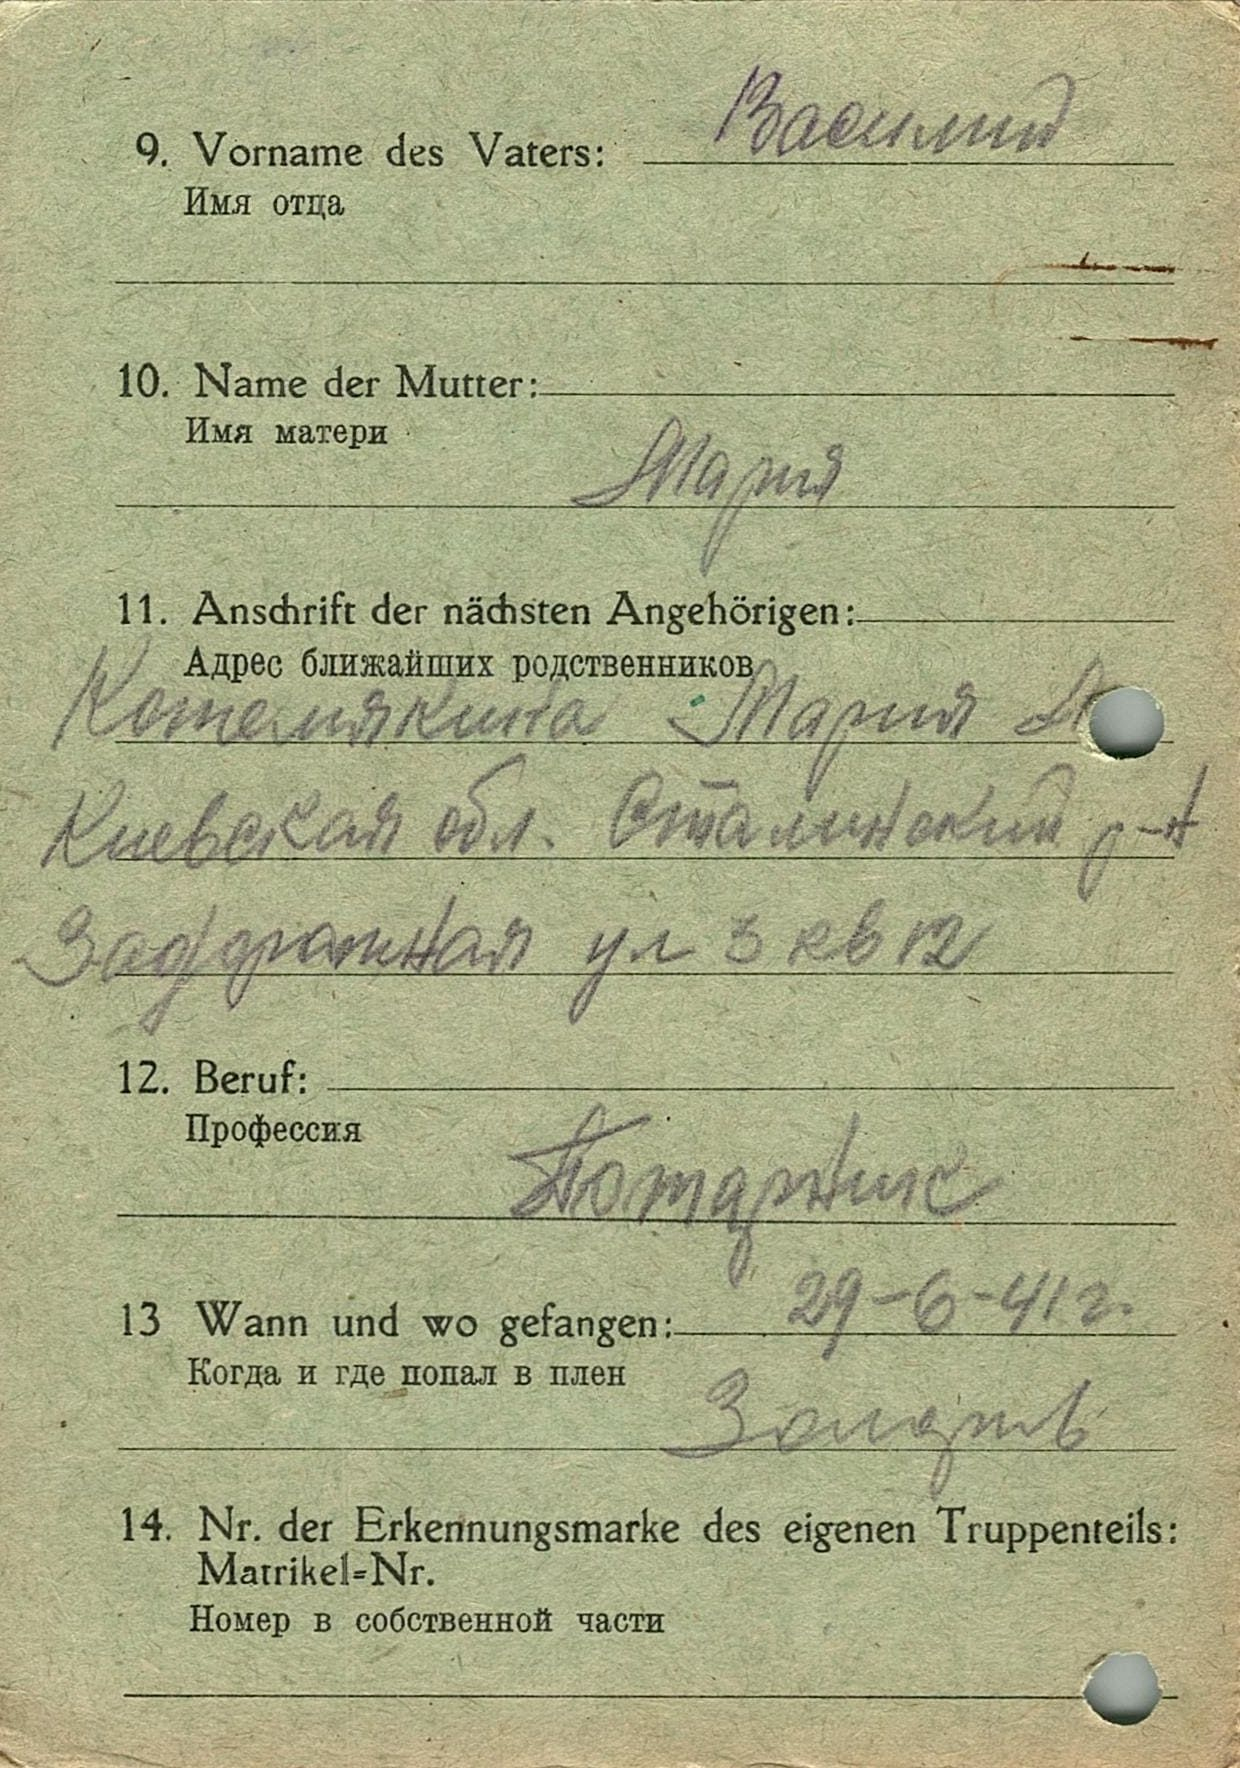 9. Vorname des Vaters: Василий
Имя отца
10. Name der Mutter:
Имя матери
Мария
11. Anschrift der nächsten Angehörigen:
Адрес ближайших родственников
Котелякина Мария
Киевская обл. Сталинский р-н
ул 3 кв 12
12. Beruf:
Профессия
13 Wann und wo gefangen: 29-6-41 г.
Когда и где попал в плен
14. Nr. der Erkennungsmarke des eigenen Truppenteils:
Matrikel=Nr.
Номер в собственной части